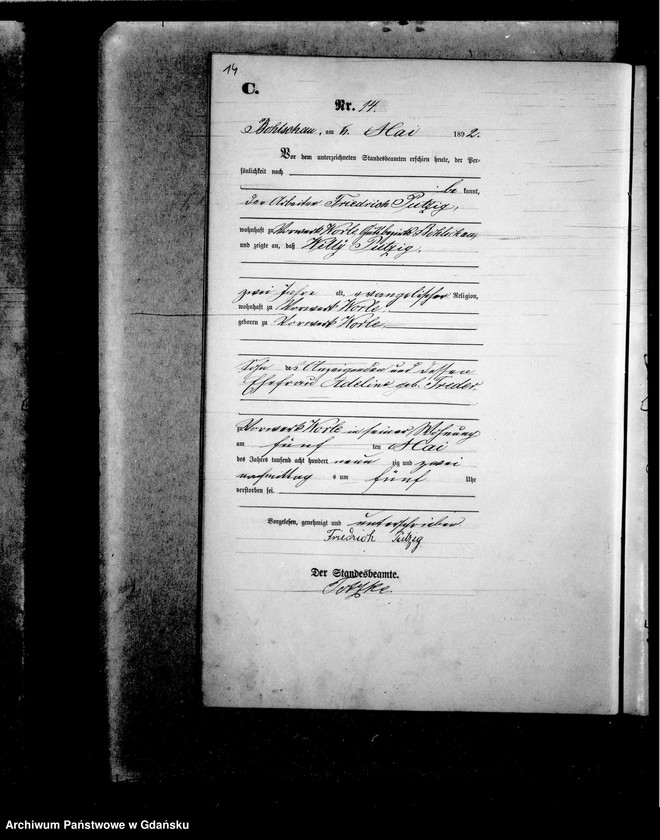 14
C.
Nr. 14.
Bohlschau, am 6. Mai 1892.
Vor dem unterzeichneten Standesbeamten erschien heute, der Per-
sönlichkeit nach
be kannt,
der Arbeiter Friedrich Putzig,
wohnhaft zu Vorwerk Worle Gutsbezirk Bohlschau,
und zeigte an, daß Willy Putzig,
zwei Jahre alt, evangelischer Religion,
wohnhaft zu Vorwerk Worle,
geboren zu Vorwerk Worle,
Sohn des Anzeigenden und dessen
Ehefrau Adeline geb. Treder
zu Vorwerk Worle in seiner Wohnung
am fünf ten Mai
des Jahrs tausend acht hundert neun zig und zwei
nachmittag s um fünf Uhr
verstorben sei.
Vorgelesen, genehmigt und unterschrieben
Friedrich Putzig
Der Standesbeamte.
Archiwum Państwowe w Gdańsku